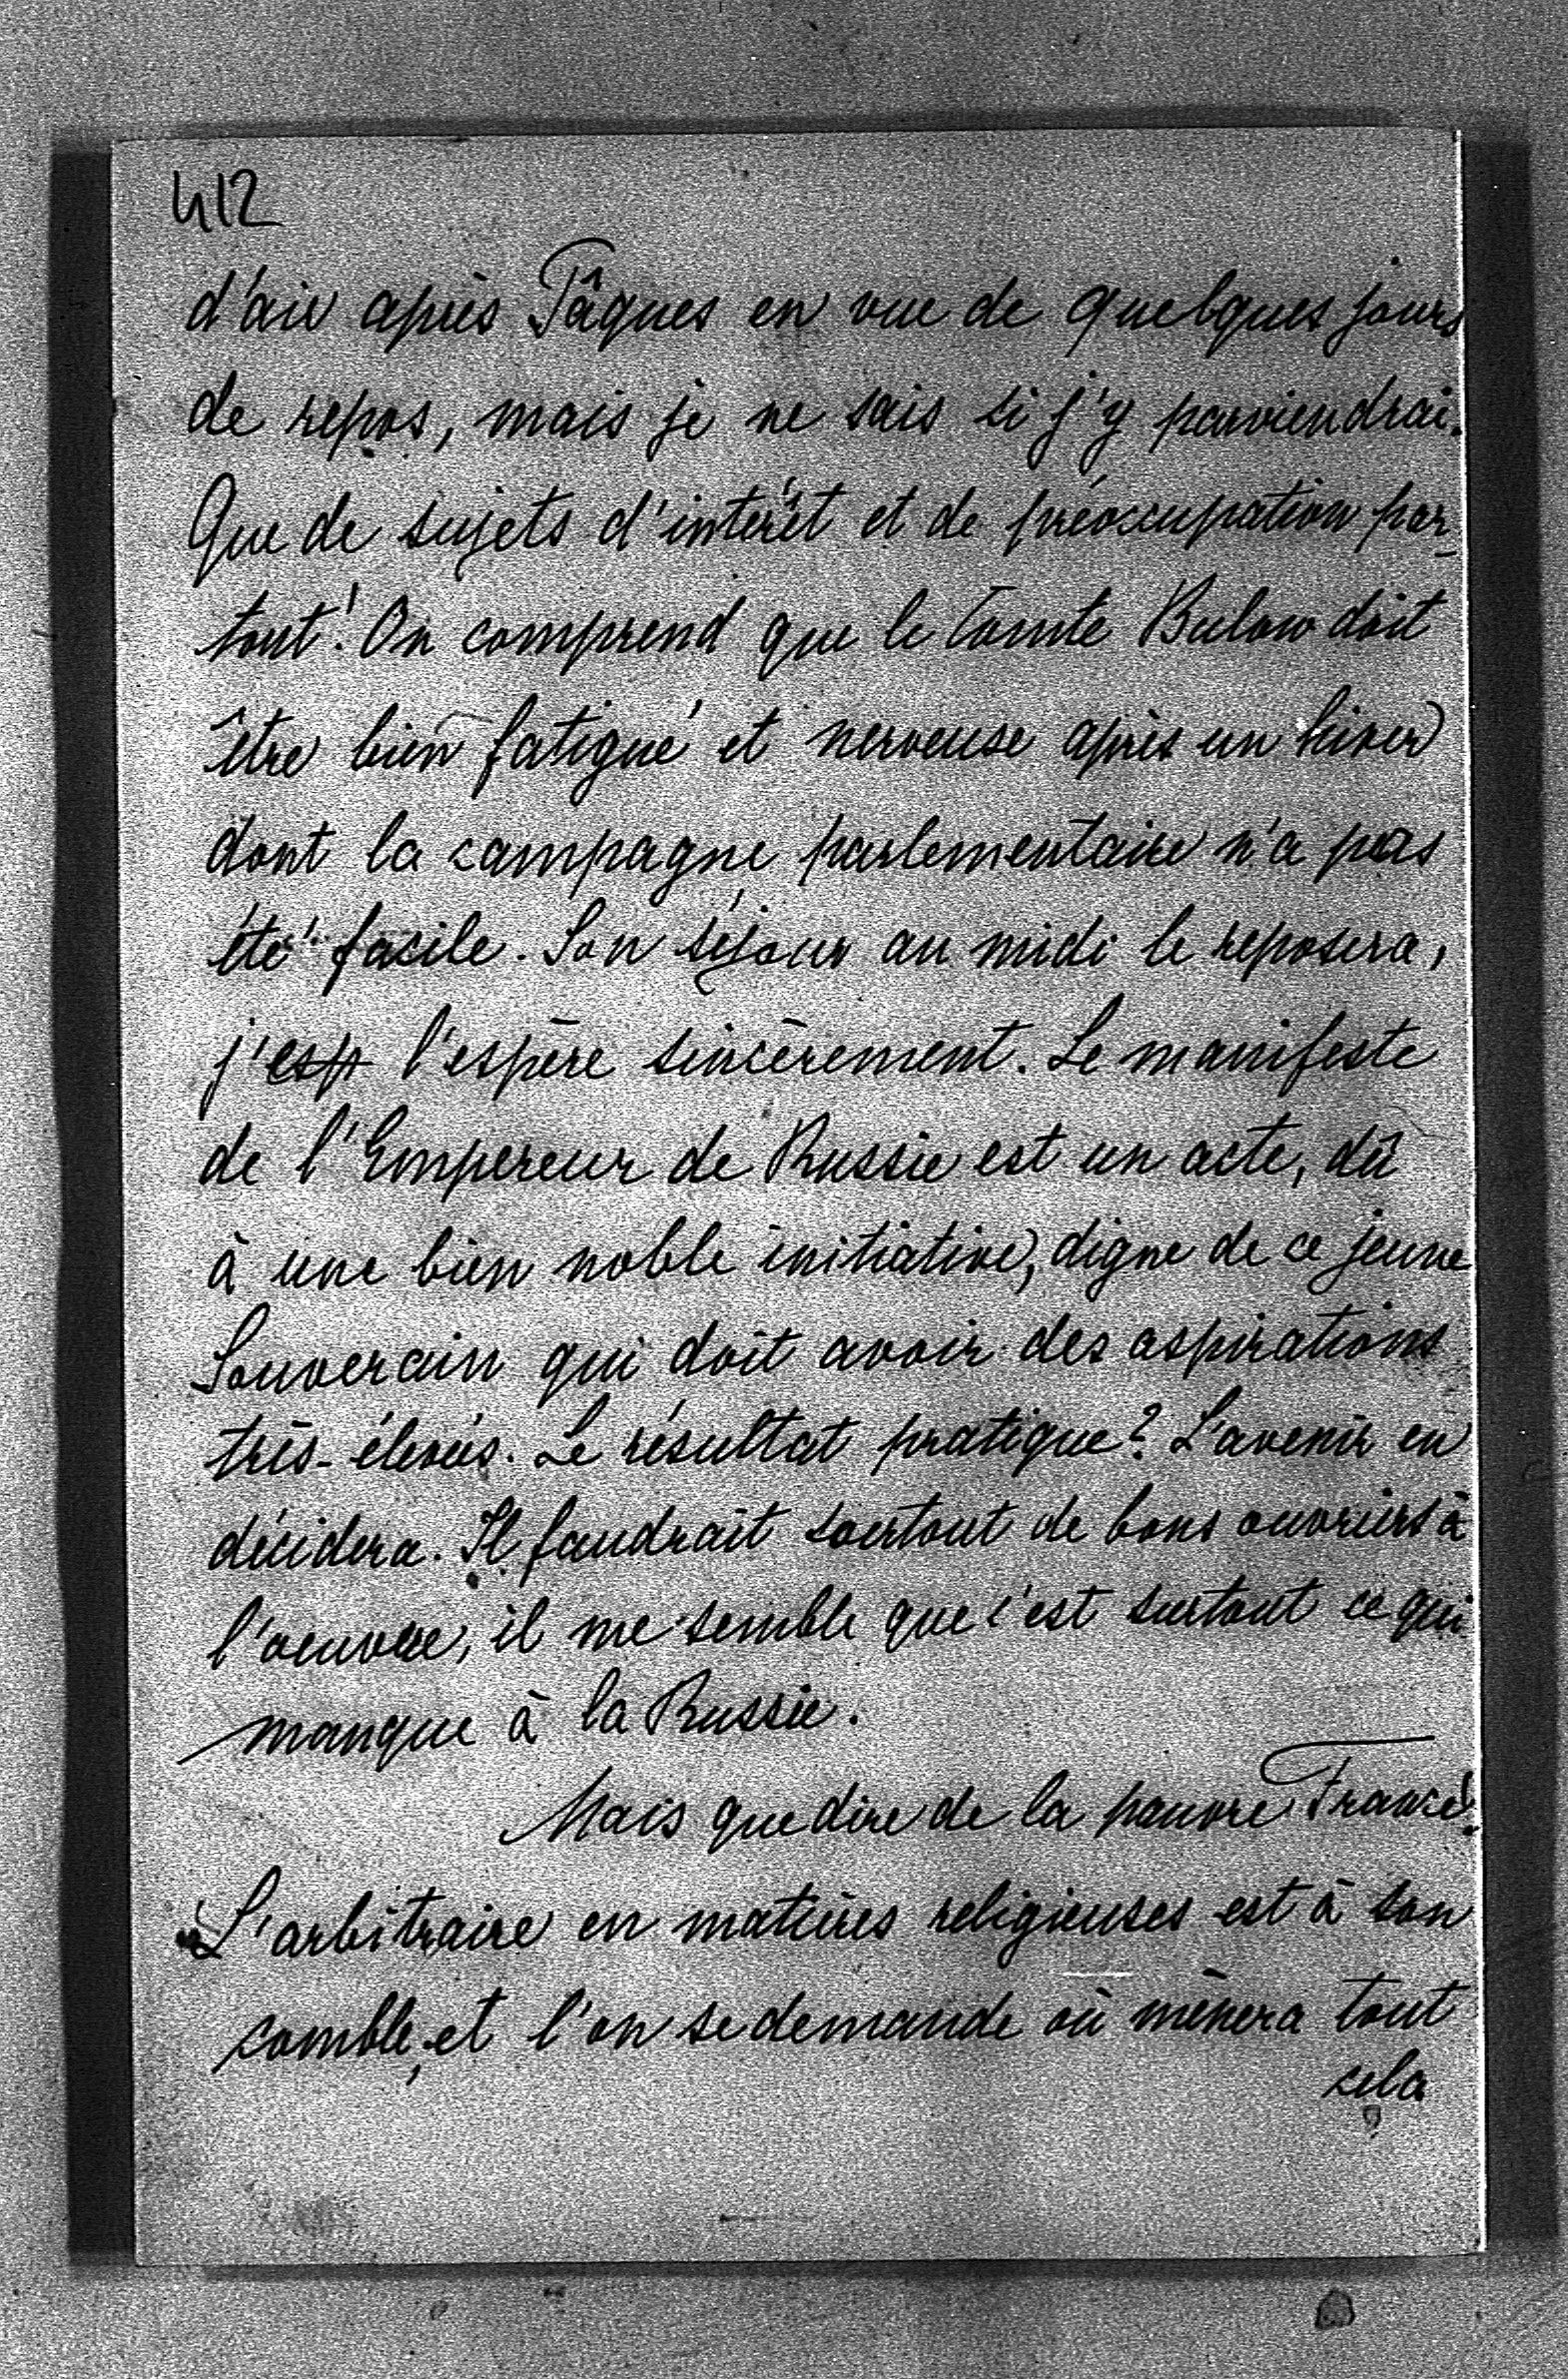 412
d'air après Pâques en vue de quelques jours
de repos, mais je ne sais si j'y parviendrai.
Que de sujets d'intérêt et de préoccupation par-
tout! On comprend que le Comte Bulow doit
être bien fatigué et nerveuse après un hiver
dont la campagne parlementaire n'a pas
été facile. Son séjour au midi le reposera,
j'esp l'espère sincèrement. Le manifeste
de l'Empereur de Russie est un acte, dû
à une bien noble initiative, digne de ce jeune
Souverain qui doit avoir des aspirations
très-élevées. Le résultat pratique? L'avenir en
décidera. Il faudrait surtout de bons ouvriers à
l'oeuvre, il me semble que c'est surtout ce qui
manque à la Russie.
Mais que dire de la pauvre France!
L'arbitraire en matières religieuses est à son
comble, et l'on se demande où mènera tout
cela